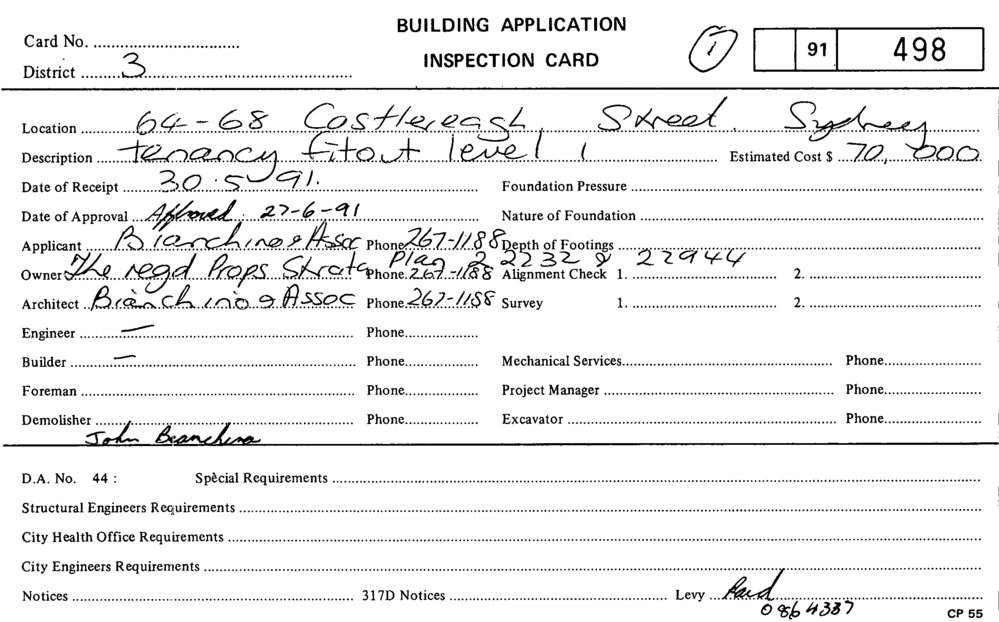 BUILDING APPLICATION
INSPECTION CARD
Card No. ..........
District ..... 3 ..........
1
91 498
Location ..... 64-68 Castlereagh Street. Sydney
Description ..... tenancy fitout level 1 ..... Estimated Cost $ 70,000
Date of Receipt ..... 30.5-91. ..... Foundation Pressure ..........
Date of Approval ..... Approved. 27-6-91 ..... Nature of Foundation ..........
Applicant ..... Bianchino & Assoc Phone 267-1188 Depth of Footings ..........
Owner The regd Props Strata Plan 22232 & 22944 Phone. 267-1188 Alignment Check 1. .......... 2. ..........
Architect ..... Bianchino & Assoc Phone 267-1188 Survey 1. .......... 2. ..........
Engineer ..... — ..... Phone..........
Builder ..... — ..... Phone.......... Mechanical Services.......... Phone..........
Foreman .......... Phone.......... Project Manager .......... Phone..........
Demolisher .......... Phone.......... Excavator .......... Phone..........
John Bianchino
D.A. No. 44 : Special Requirements ..........
Structural Engineers Requirements ..........
City Health Office Requirements ..........
City Engineers Requirements ..........
Notices .......... 317D Notices .......... Levy ..... Paid
0864337
CP 55